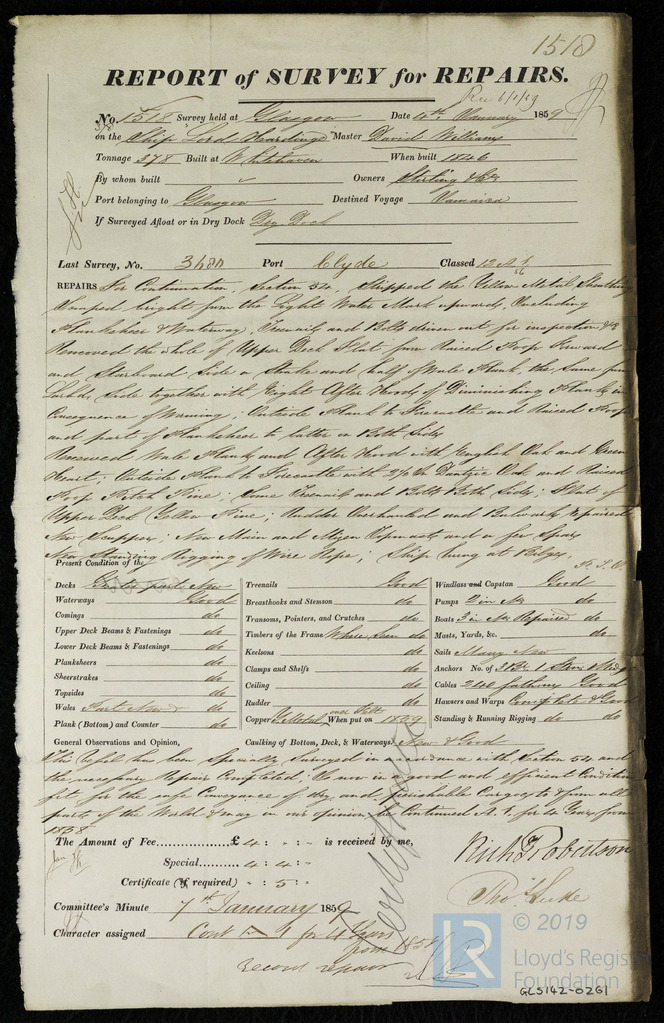 1518
REPORT of SURVEY for REPAIRS.
Rec 6/1/59
No. 1518 Survey held at Glasgow Date 4th January 1859
on the Ship Lord Hardinge Master David Williams
Tonnage 378 Built at Whitehaven When built 1846
By whom built Owners Stirling & Co
Port belonging to Glasgow Destined Voyage Jamaica
If Surveyed Afloat or in Dry Dock Dry Dock
Last Survey, No. Port Clyde Classed 12 A 1
REPAIRS For Continuation, Section 54, Stripped the Yellow Metal Sheathing
Scraped bright from the Light Water Mark upwards, including
Planksheer & Waterway, Treenails and Bolts driven out for inspection &c
Removed the whole of Upper Deck Flat from Raised Poop Forward
and Starboard Side a Strake and half of Wale Plank, the Same
Larbd. Side together with Eight After Hoods of Diminishing Plank in
Consequence of Worming; Outside Plank to Forecastle and Raised Poop
and part of Planksheer to latter on Both Sides
Renewed Wale Plank and After Hood with English Oak and Green
Heart; Outside Plank to Forecastle with 2½ In Dantzic Oak and Raised
Poop Pitch Pine; Some Treenails and Bolts Both Sides; Flat of
Upper Deck Yellow Pine; Rudder Overhauled and Bulwarks repaired
New Scuppers; New Main and Mizen Topmasts and a few Spars
New Standing Rigging of Wire Rope; Ship hung at Bilges
Present Condition of the
Decks Greater part New Treenails Good Windlass and Capstan Good
Waterways Good Breasthooks and Stemson do Pumps 2 in No
Comings do Transoms, Pointers, and Crutches do Boats 3 in No Repaired do
Upper Deck Beams & Fastenings do Timbers of the Frame Where Seen do Masts, Yards, &c. do
Lower Deck Beams & Fastenings do Keelsons do Sails Many New
Planksheers do Clamps and Shelfs do Anchors No. of
Sheerstrakes do Ceiling do Cables 240 fathoms Good
Topsides do Rudder do Hawsers and Warps Complete & Good
Wales Part New & do Copper Y Metal over Felt When put on 1859 Standing & Running Rigging do do
Plank (Bottom) and Counter do
General Observations and Opinion, Caulking of Bottom, Deck, & Waterways New & Good
This Vessel has been Specially Surveyed in accordance with Section 54 and
the necessary Repair Completed; Is now in a good and efficient Condition
fit for the safe Conveyance of dry and perishable Cargoes to & from all
parts of the World & may in our opinion be Continued A.1. for 4 Years from
1858
The Amount of Fee £ 4 : - : - is received by me,
Special 4 : 4 : -
Certificate (if required) - : 5 : -
Richd Robertson
Thos Luke
Committee's Minute 7th January 1859
Character assigned Contd A 1 for 4 Years
from 1858
record repairs
© 2019
LR
Lloyd's Register
Foundation
GLS142-0261